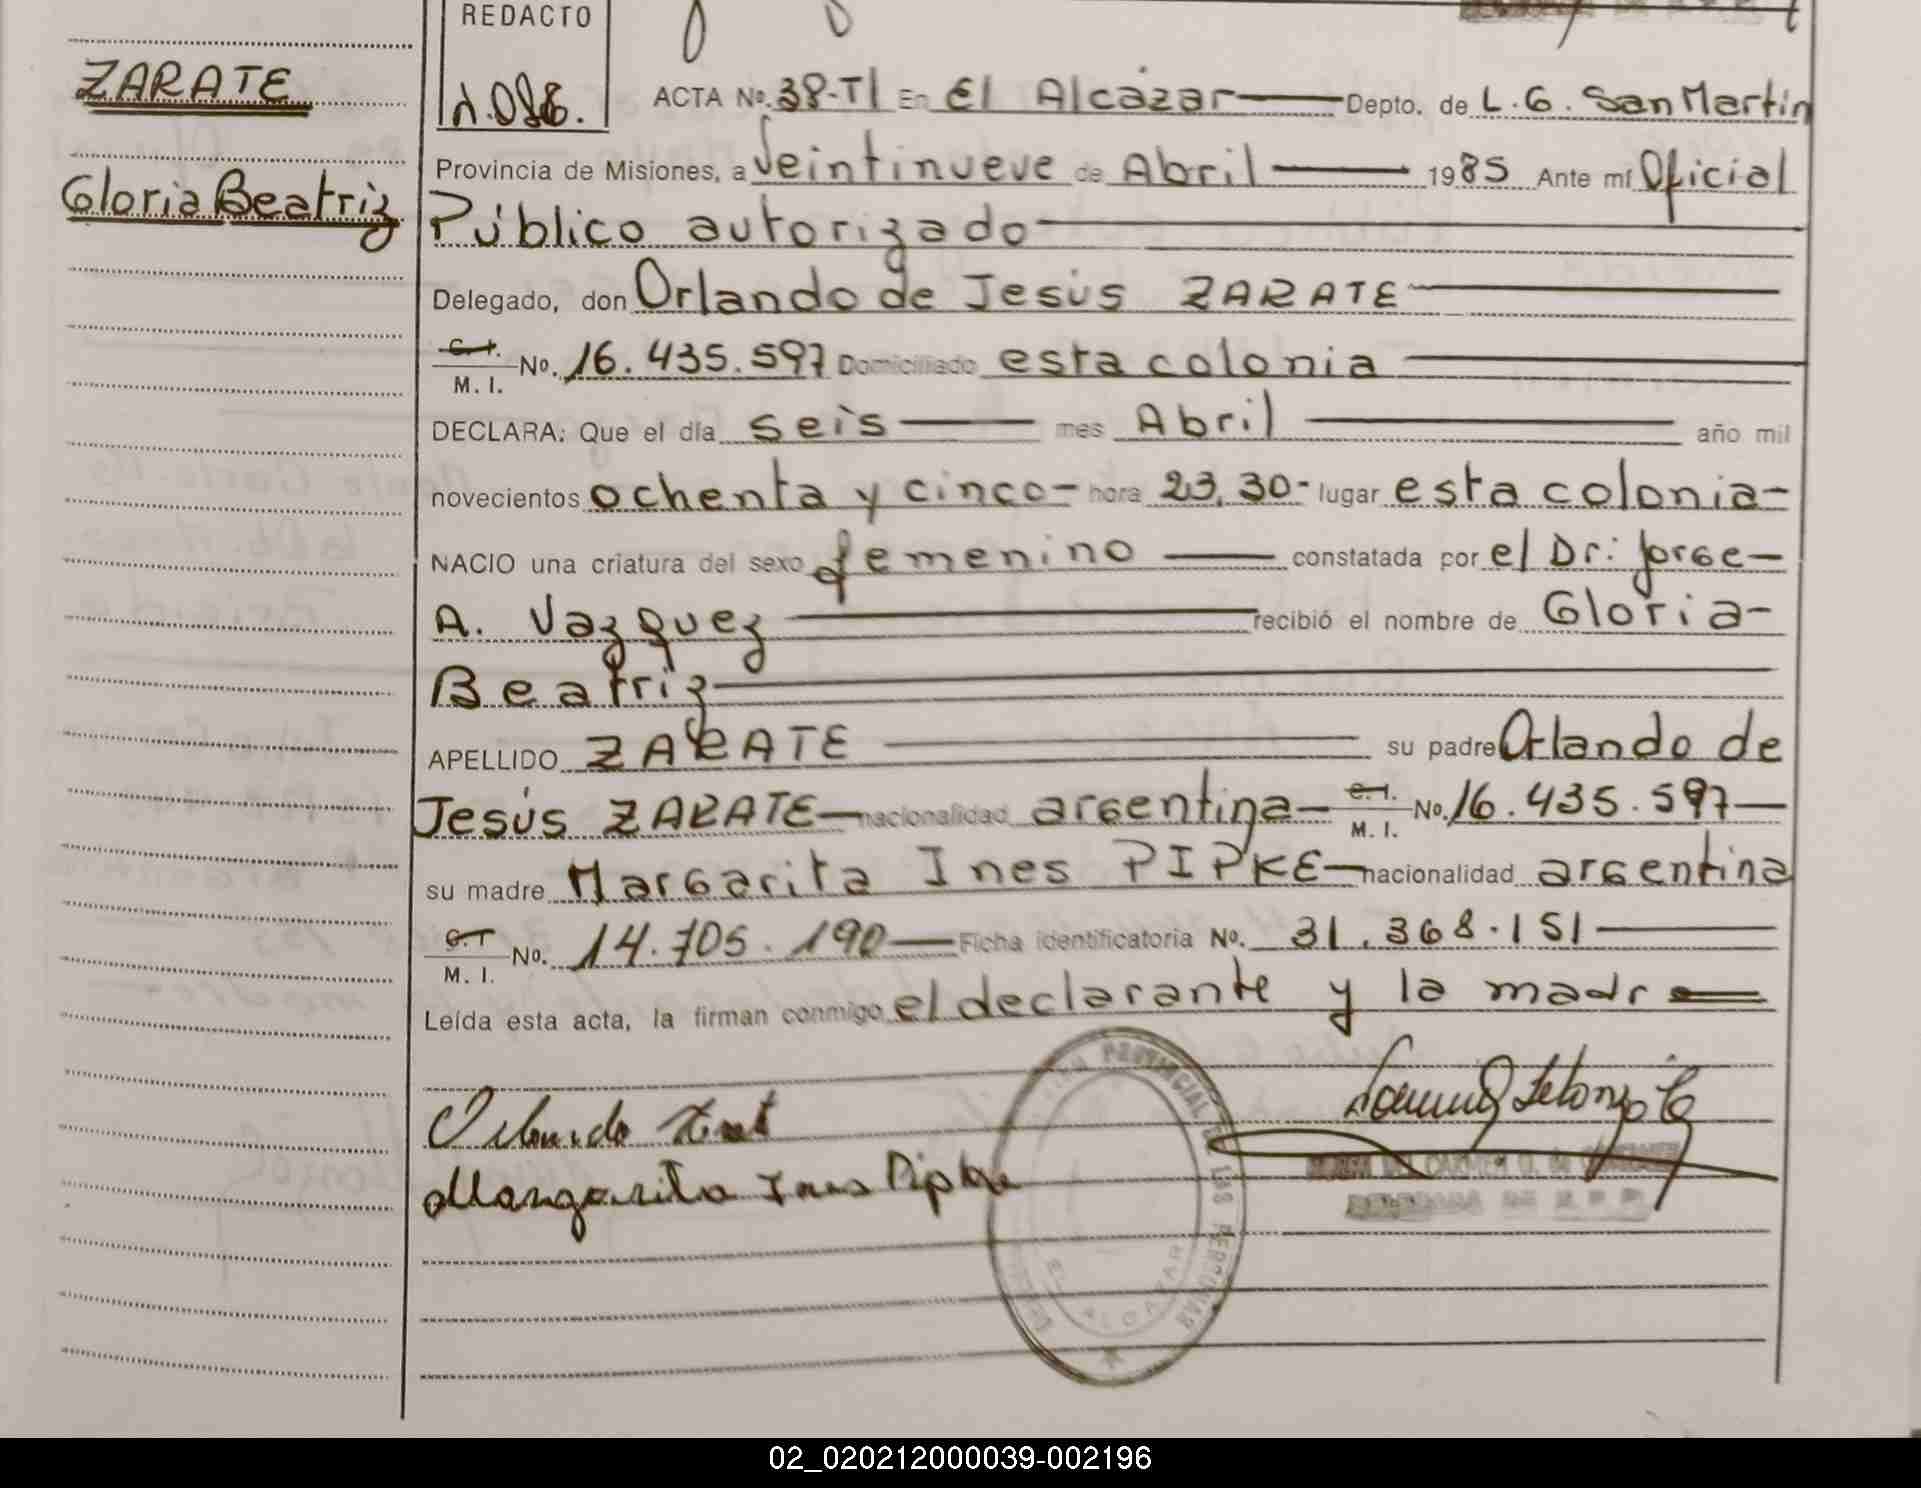 REDACTO
ZARATE
Gloria Beatriz
ACTA Nº. 38-TI En El Alcázar Depto. de L.G. San Martin
Provincia de Misiones, a Veintinueve de Abril 1985 Ante mí Oficial
Público autorizado
Delegado, don Orlando de Jesús ZARATE
C.I. M. I. Nº. 16.435.597 Domiciliado esta colonia
DECLARA: Que el día seis mes Abril año mil
novecientos ochenta y cinco- hora 23,30- lugar esta colonia-
NACIO una criatura del sexo femenino constatada por el Dr: Jorge-
A. Vazquez recibió el nombre de Gloria-
Beatriz
APELLIDO ZARATE su padre Orlando de
Jesús ZARATE nacionalidad argentina- C.I. M. I. Nº. 16.435.597
su madre Margarita Ines PIPKE nacionalidad argentina
C.I. M. I. Nº. 14.705.190 Ficha identificatoria Nº. 31.368.151
Leída esta acta, la firman conmigo el declarante y la madre
Orlando
Margarita Ines Pipke
PROVINCIAL DE LAS PERSONAS
EL ALCAZAR
DEL CARMEN
DELEGADA DE R.P.P.
02_020212000039-002196